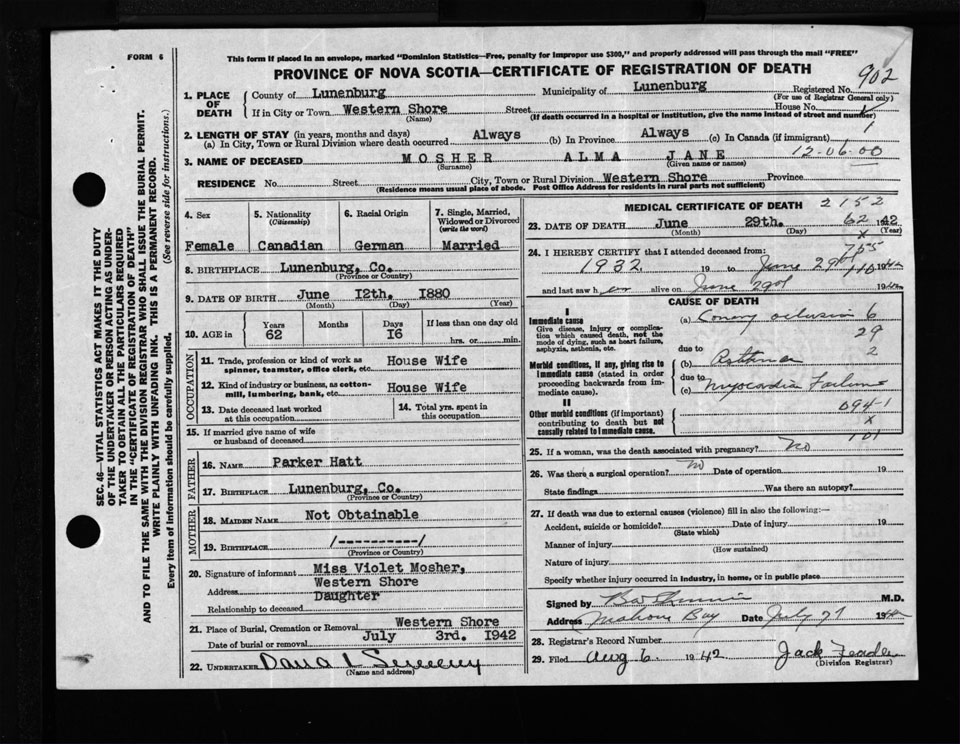 FORM 6
This form if placed in an envelope, marked "Dominion Statistics—Free, penalty for improper use $300," and properly addressed will pass through the mail "FREE"
PROVINCE OF NOVA SCOTIA—CERTIFICATE OF REGISTRATION OF DEATH
902
1. PLACE OF DEATH
County of Lunenburg Municipality of Lunenburg Registered No.
(For use of Registrar General only)
If in City or Town Western Shore Street House No. 1
(Name) (If death occurred in a hospital or institution, give the name instead of street and number)
1
2. LENGTH OF STAY (in years, months and days)
(a) In City, Town or Rural Division where death occurred Always (b) In Province Always (c) In Canada (if immigrant)
12-06-00
3. NAME OF DECEASED MOSHER ALMA JANE
(Surname) (Given name or names)
RESIDENCE No. Street City, Town or Rural Division Western Shore Province
(Residence means usual place of abode. Post Office Address for residents in rural parts not sufficient)
SEC. 46—VITAL STATISTICS ACT MAKES IT THE DUTY
OF THE UNDERTAKER OR PERSON ACTING AS UNDER-
TAKER TO OBTAIN ALL THE PARTICULARS REQUIRED
IN THE "CERTIFICATE OF REGISTRATION OF DEATH"
AND TO FILE THE SAME WITH THE DIVISION REGISTRAR WHO SHALL ISSUE THE BURIAL PERMIT.
WRITE PLAINLY WITH UNFADING INK. THIS IS A PERMANENT RECORD.
Every item of information should be carefully supplied. (See reverse side for instructions.)
4. Sex 5. Nationality (Citizenship) 6. Racial Origin 7. Single, Married, Widowed or Divorced (write the word)
Female Canadian German Married
8. BIRTHPLACE Lunenburg, Co.
(Province or Country)
9. DATE OF BIRTH June 12th. 1880
(Month) (Day) (Year)
10. AGE in Years Months Days If less than one day old
62 16 hrs. or min.
OCCUPATION
11. Trade, profession or kind of work as spinner, teamster, office clerk, etc. House Wife
12. Kind of industry or business, as cotton-mill, lumbering, bank, etc. House Wife
13. Date deceased last worked at this occupation 14. Total yrs. spent in this occupation
15. If married give name of wife or husband of deceased
FATHER
16. NAME Parker Hatt
17. BIRTHPLACE Lunenburg, Co.
(Province or Country)
MOTHER
18. MAIDEN NAME Not Obtainable
19. BIRTHPLACE /----------/
(Province or Country)
20. Signature of informant Miss Violet Mosher,
Address Western Shore
Relationship to deceased Daughter
21. Place of Burial, Cremation or Removal Western Shore
Date of burial or removal July 3rd. 1942
22. UNDERTAKER
(Name and address)
MEDICAL CERTIFICATE OF DEATH 2152
23. DATE OF DEATH June 29th. 62 1942
(Month) (Day) (Year)
x
24. I HEREBY CERTIFY that I attended deceased from: 755
1932 19 to June 29th 1942
and last saw her alive on June 29th 1942
CAUSE OF DEATH
I
Immediate cause
Give disease, injury or complication which caused death, not the mode of dying, such as heart failure, asphyxia, asthenia, etc.
(a) occlusion 6
29
due to
Morbid conditions, if any, giving rise to immediate cause (stated in order proceeding backwards from immediate cause).
(b) Asthma 2
due to
(c) Failure
II
Other morbid conditions (if important) contributing to death but not causally related to immediate cause.
094-1
x
101
25. If a woman, was the death associated with pregnancy? No
26. Was there a surgical operation? No Date of operation 19
State findings Was there an autopsy?
27. If death was due to external causes (violence) fill in also the following:—
Accident, suicide or homicide? Date of injury 19
(State which)
Manner of injury
(How sustained)
Nature of injury
Specify whether injury occurred in industry, in home, or in public place
Signed by M.D.
Address Mahone Bay Date July 27 1942
28. Registrar's Record Number
29. Filed Aug 6 1942 Jack
(Division Registrar)